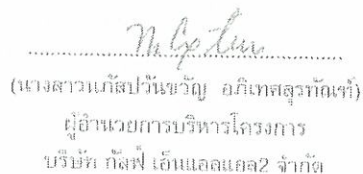 (นางสาวนภัสปวันขวัญ อภิเทศสุรทัณฑ์)
ผู้อำนวยการบริหารโครงการ
บริษัท กัลฟ์ เอ็นแอลแอล2 จำกัด